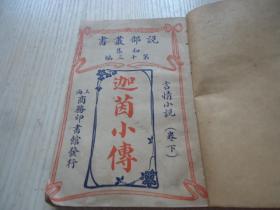 說部叢書
初集
第十三編
言情小說
(卷下)
迦茵小傳
上海商務印書館發行